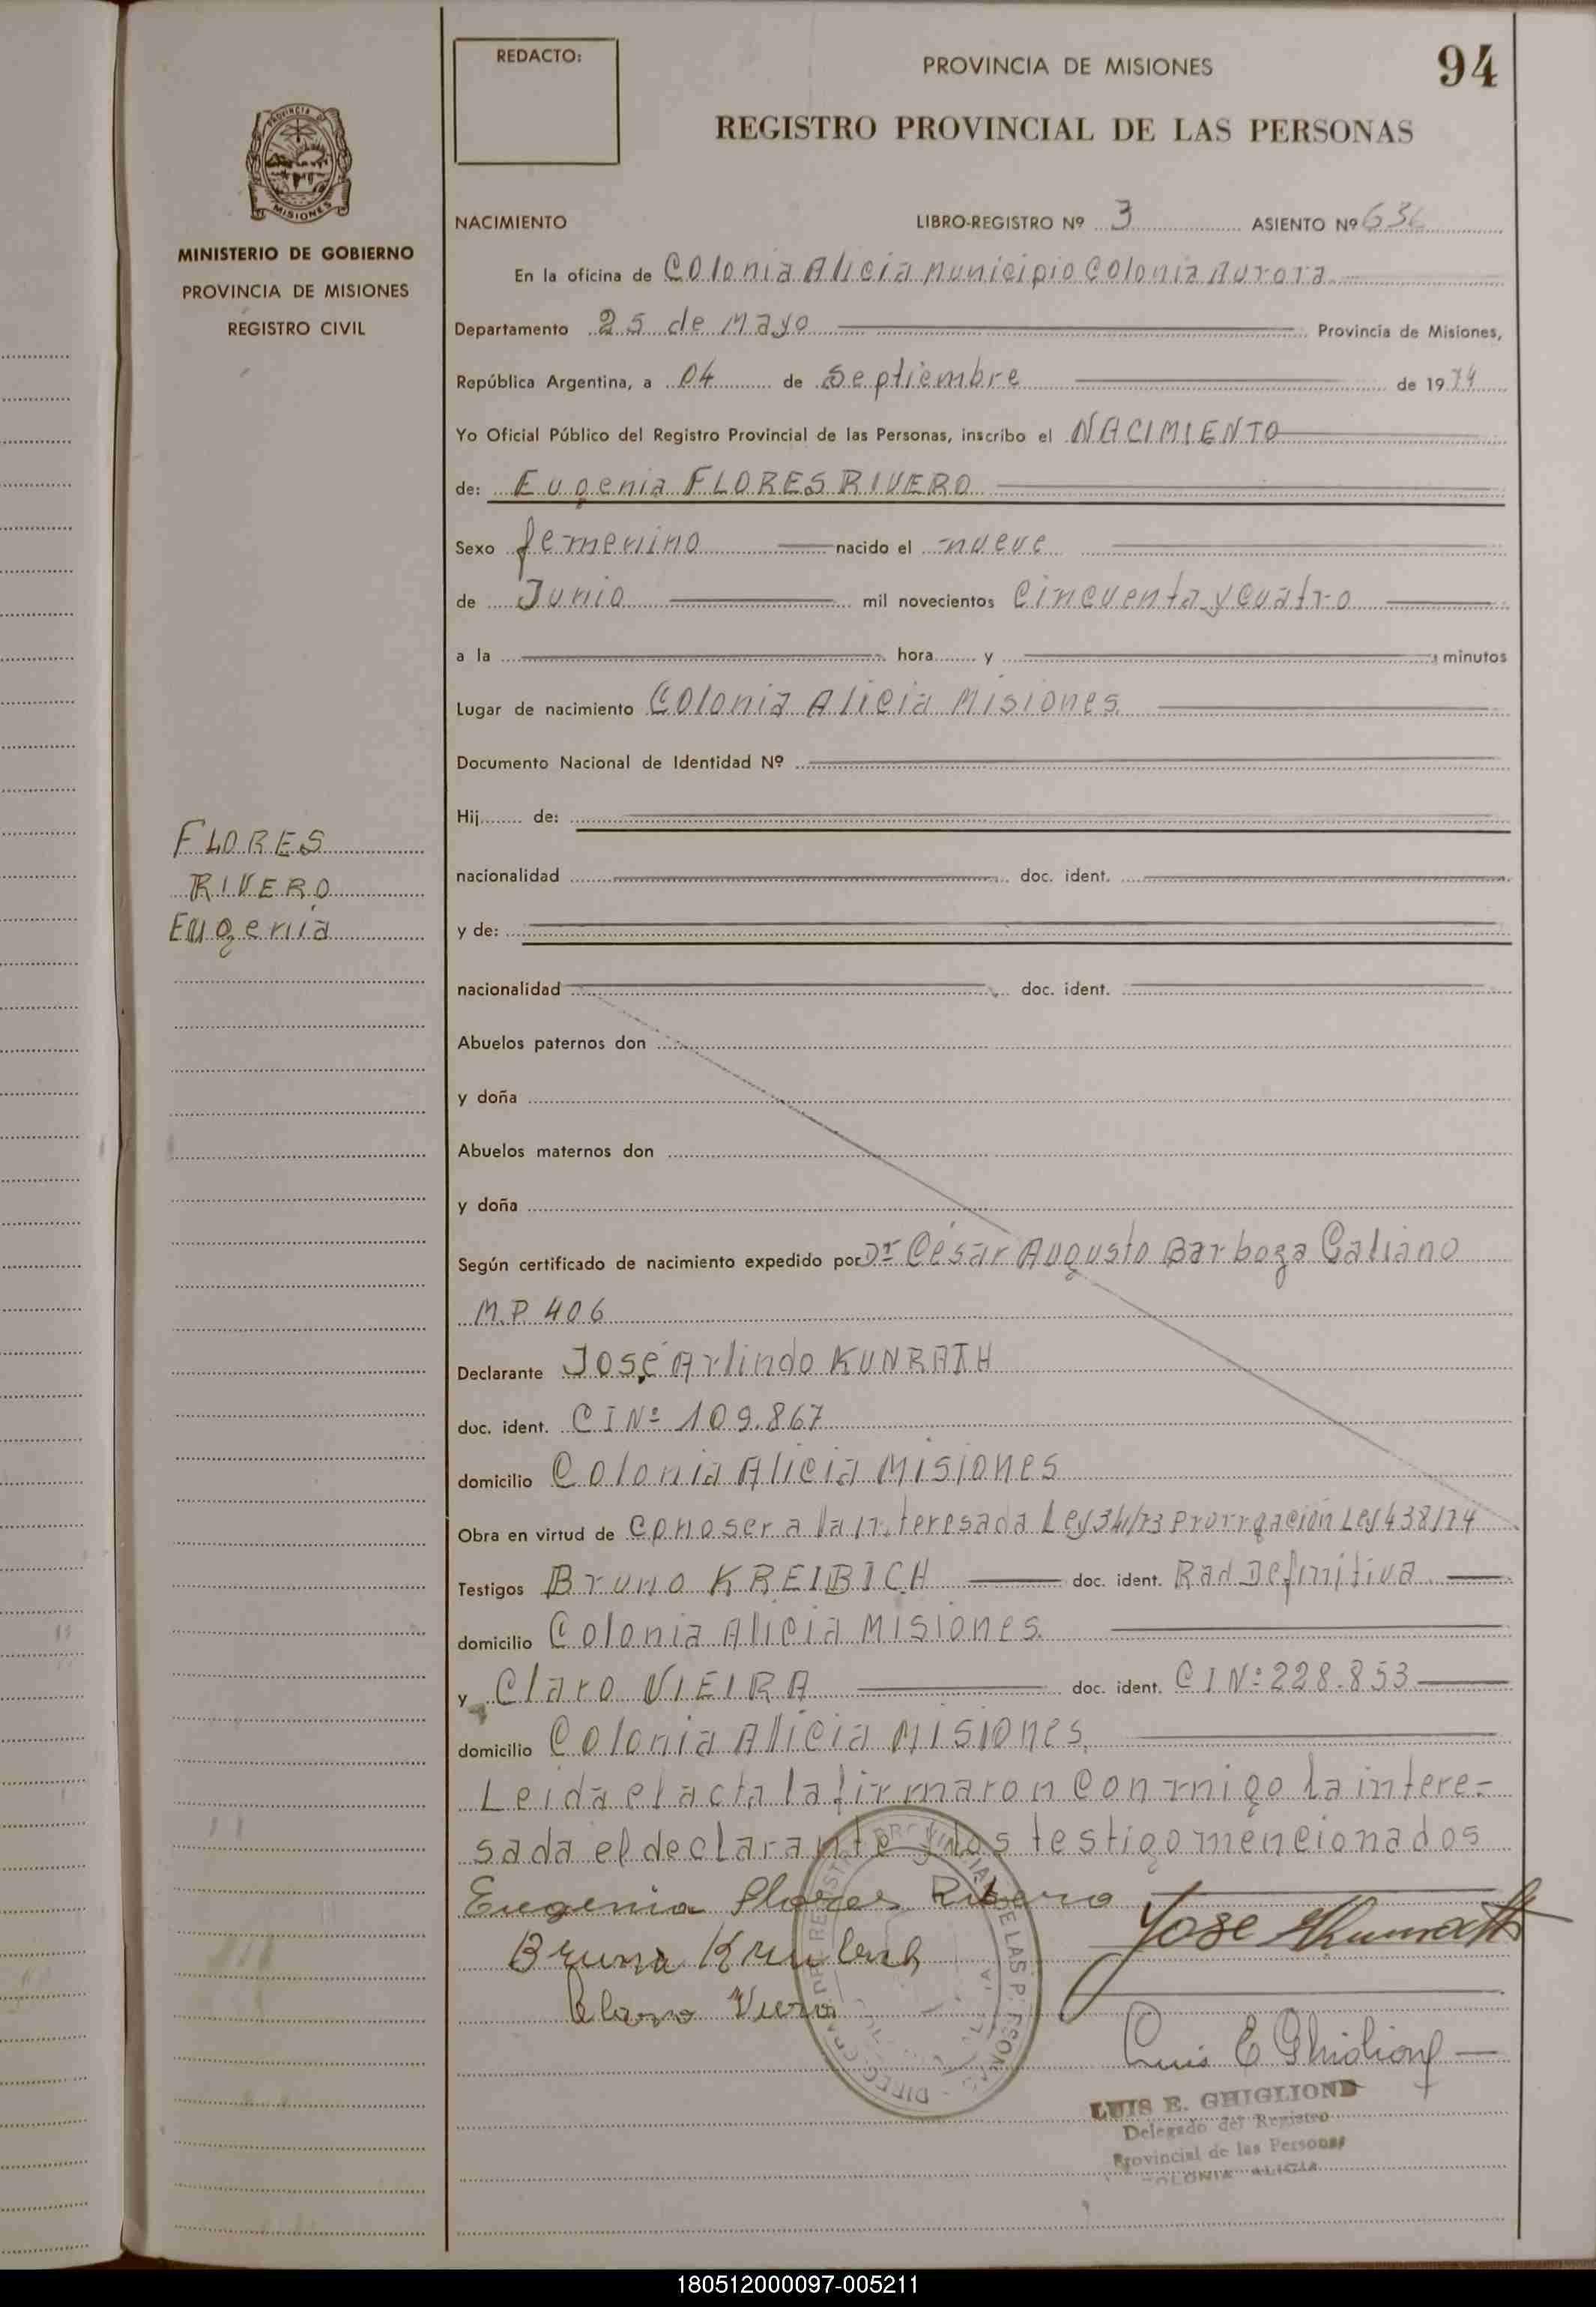 REDACTO:
PROVINCIA DE MISIONES
94
REGISTRO PROVINCIAL DE LAS PERSONAS
PROVINCIA DE
MISIONES
MINISTERIO DE GOBIERNO
PROVINCIA DE MISIONES
REGISTRO CIVIL
FLORES
RIVERO
Eugenia
NACIMIENTO LIBRO-REGISTRO Nº 3 ASIENTO Nº
En la oficina de Colonia Alicia Municipio Colonia Aurora
Departamento 25 de Mayo Provincia de Misiones,
República Argentina, a 04 de Septiembre de 1974
Yo Oficial Público del Registro Provincial de las Personas, inscribo el NACIMIENTO
de: Eugenia FLORES RIVERO
Sexo femenino nacido el nueve
de Junio mil novecientos Cincuenta y Cuatro
a la hora y minutos
Lugar de nacimiento Colonia Alicia Misiones
Documento Nacional de Identidad Nº
Hij de:
nacionalidad doc. ident.
y de:
nacionalidad doc. ident.
Abuelos paternos don
y doña
Abuelos maternos don
y doña
Según certificado de nacimiento expedido por Dr César Augusto Barboza Galiano
M.P. 406
Declarante José Arlindo KUNRATH
doc. ident. C I Nº 109.867
domicilio Colonia Alicia Misiones
Obra en virtud de Conoser a la interesada Ley 341/73 Prorrgación Ley 438/74
Testigos Bruno KREIBICH doc. ident. Rad Definitiva
domicilio Colonia Alicia Misiones.
y Claro VIEIRA doc. ident. C I Nº 228.853
domicilio Colonia Alicia Misiones.
Leida el acta la firmaron Conmigo la intere=
sada el declarante y los testigo mencionados
Eugenia Flores Ribero
Jose Kunrath
Bruno Kreibich
Claro Viera
Luis E Ghiglione
LUIS E. GHIGLIONE
Delegado del Registro
Provincial de las Personas
COLONIA ALICIA
180512000097-005211